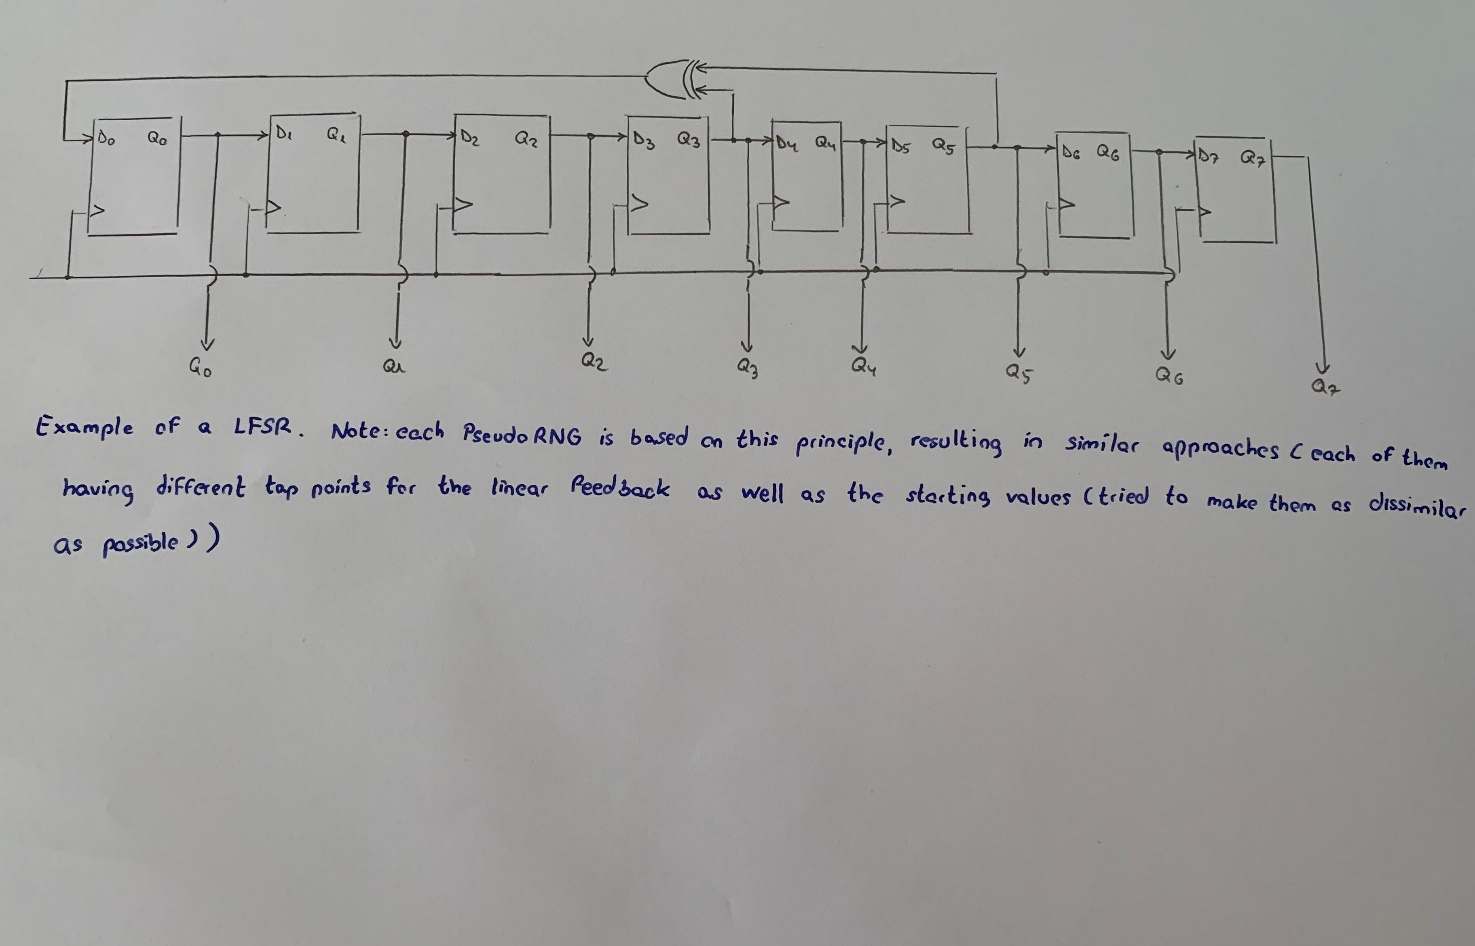 D0 Q0 D1 Q1 D2 Q2 D3 Q3 D4 Q4 D5 Q5 D6 Q6 D7 Q7
Q0 Q1 Q2 Q3 Q4 Q5 Q6 Q7
Example of a LFSR. Note: each Pseudo RNG is based on this principle, resulting in similar approaches (each of them
having different tap points for the linear feedback as well as the starting values (tried to make them as dissimilar
as possible))